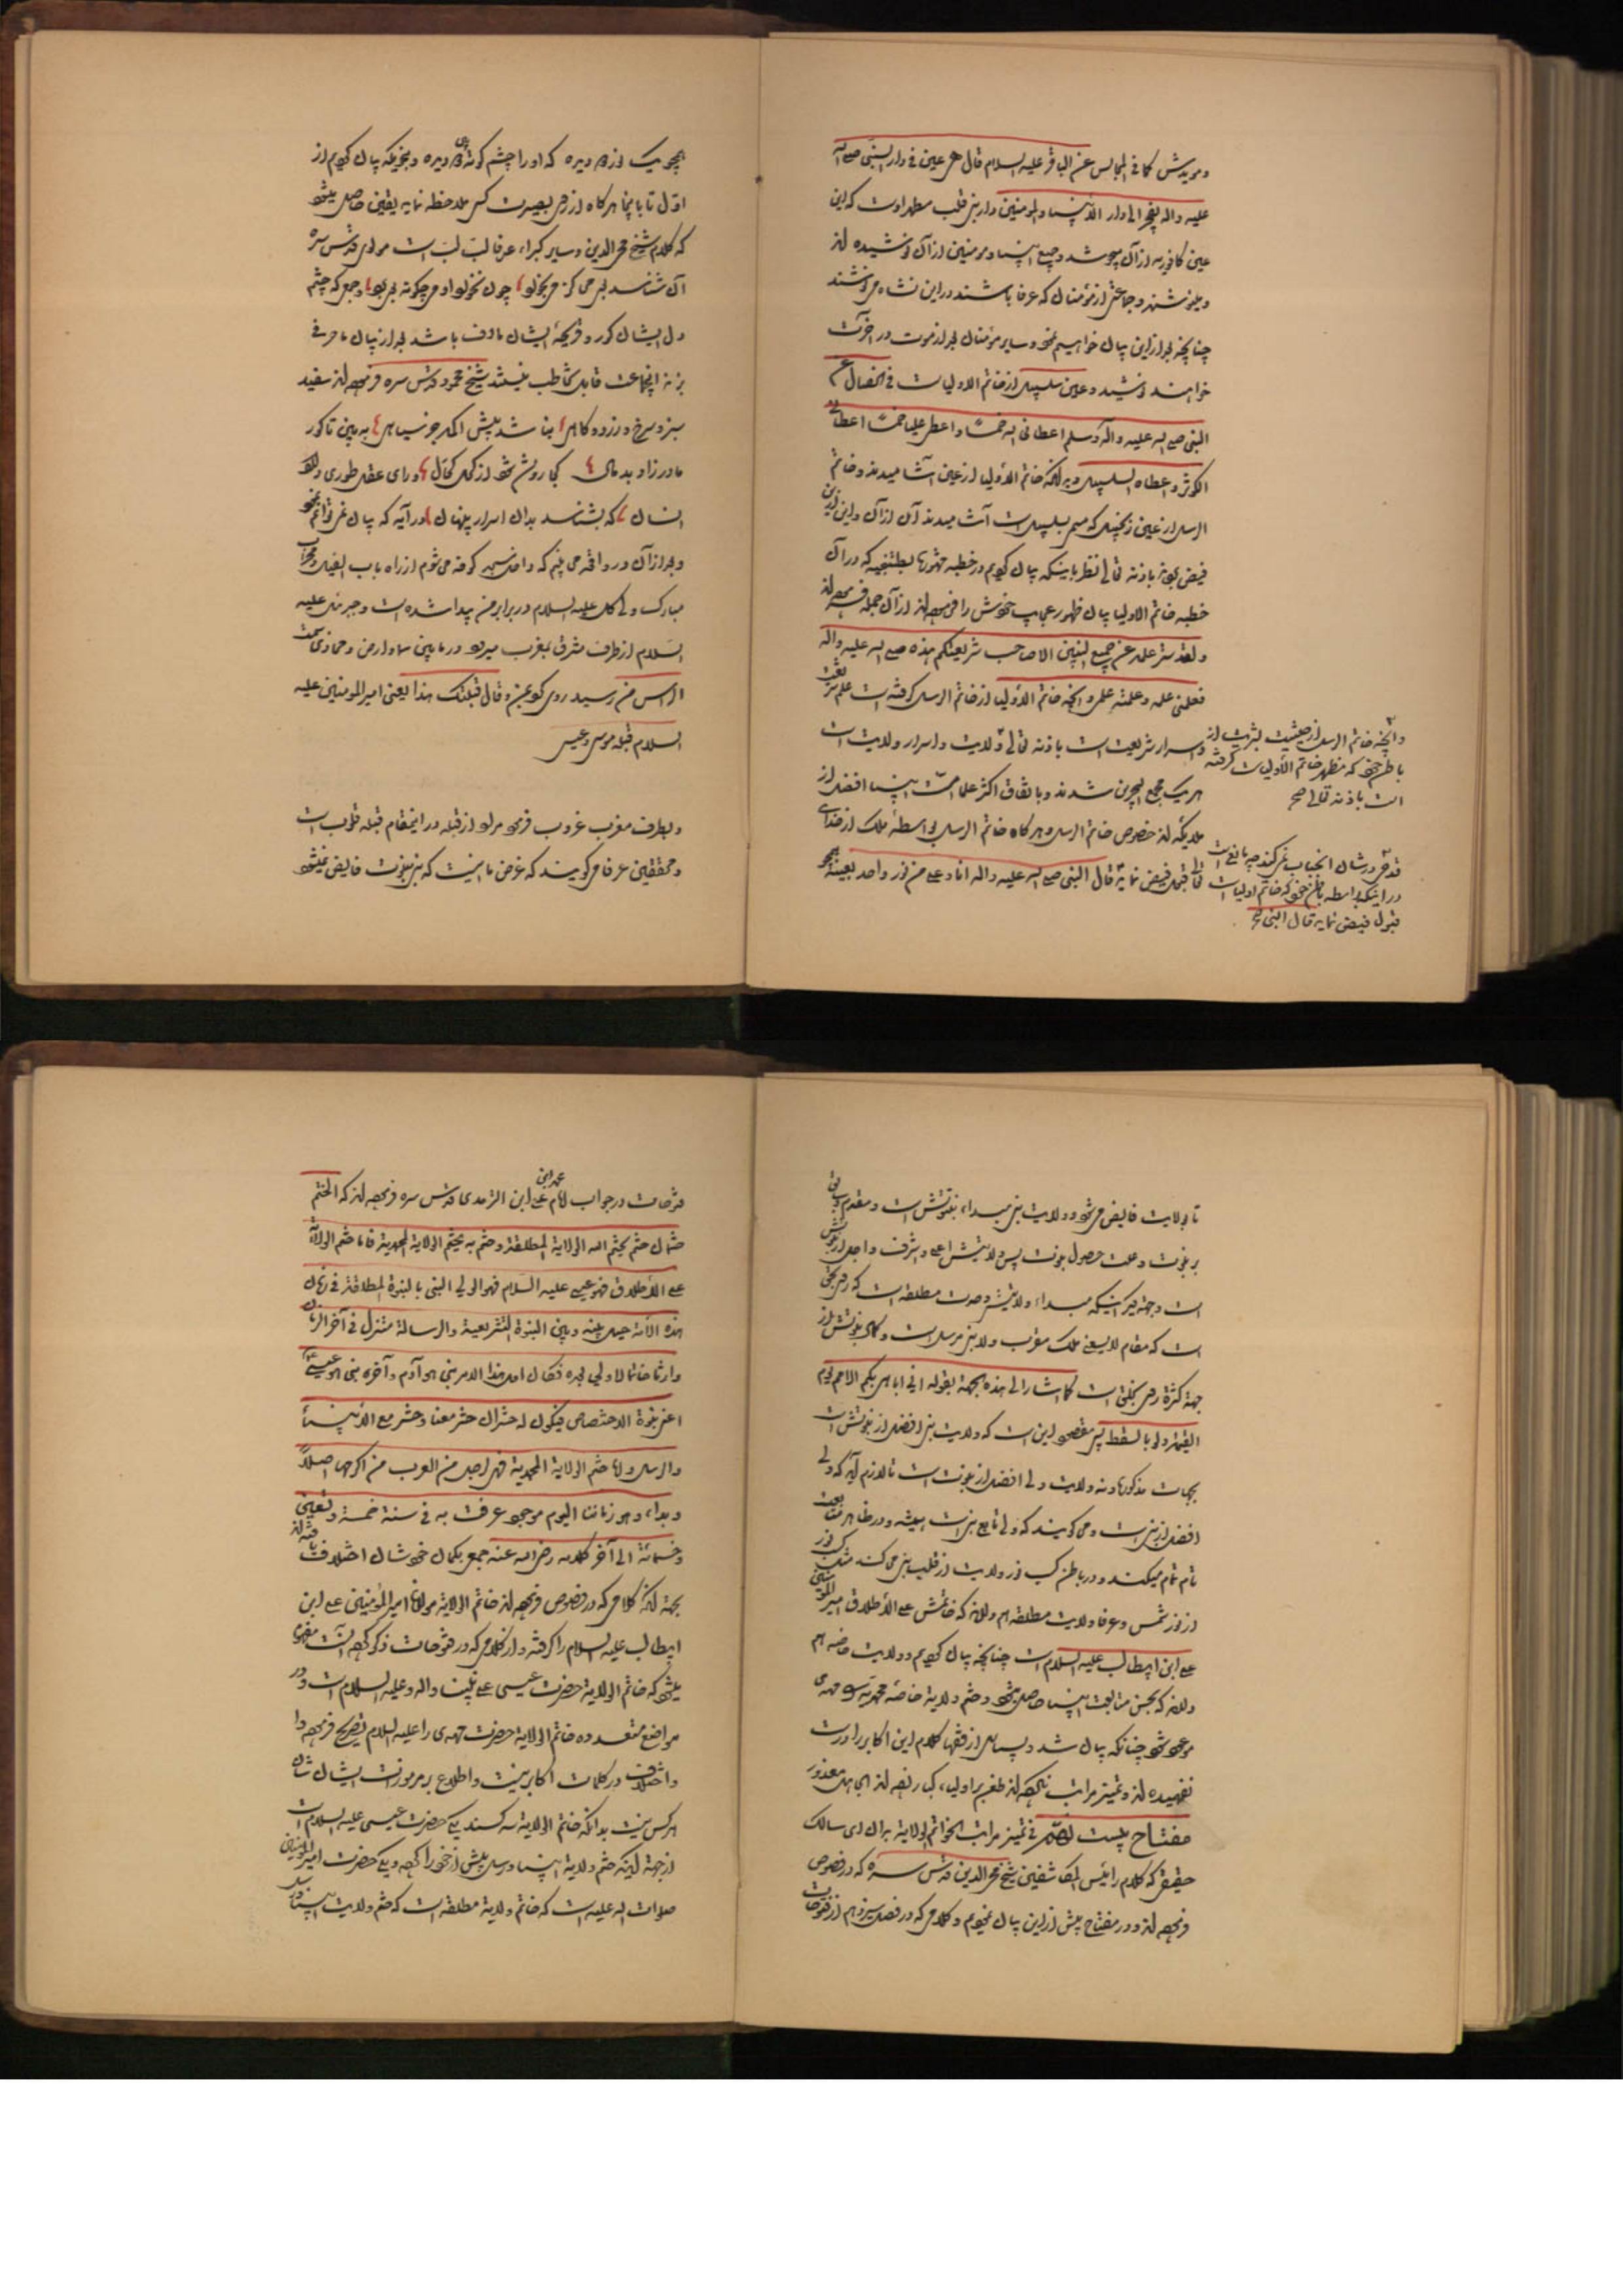 ومویدش کما فی المجالس عن الباقر علیه السلام قال هی عین فی دار النبی صلی الله
علیه واله یفجر الی دار الانبیاء والمومنین ودار بنی قلب مطهر اوست که این
عین کافوریه از آن میجوشد وجمیع انبیا و مومنین از آن نوشیده اند
ومینوشند وجماعتی از مؤمنان که عرفا باشند در این نشاه می نوشند
چنانچه بعد از این بیان خواهیم نمود وسایر مؤمنان بعد از موت در آخرت
خواهند نوشید وعین سلسبیل از خاتم الاولیاست فی الخصال عن
النبی صلی الله علیه وآله وسلم اعطانی الله خمسا واعطی علیا خمسا اعطانی
الکوثر واعطاه السلسبیل وبدانکه خاتم الاولیا از عین آشامیدند وخاتم
الرسل از عین زنجبیل که مسمی بسلسبیل است آشامیدند آن از آن واین از این
فیض نمود باذنه تعالی نظر باینکه بیان کردیم در خطبه تطنجیه که در آن
خطبه خاتم الاولیا بیان ظهور عجایب خویش را فرموده اند از آن جمله فرموده اند
ولقد ستر علمه عن جمیع النبیین الا صاحب شریعتکم هذه صلی الله علیه واله
فعلمنی علمه وعلمته علمی وانچه خاتم الاولیا از خاتم الرسل گرفته است علم شریعت
واسرار شریعت است باذنه تعالی ولایت واسرار ولایت است
هریک مجمع البحرین شدند وباتفاق اکثر علما امت انبیا افضل از
ملائکه اند خصوص خاتم الرسل وهرگاه خاتم الرسل بواسطه ملک از خدای
تعالی قبول فیض نماید قال النبی صلی الله علیه واله انا وعلی من نور واحد بعینه
وآنچه خاتم الرسل از حیثیت بشریت از
باطن خود که مظهر خاتم الاولیاست گرفته
است باذنه تعالی صح
قدحی در شان آنجناب نمیکند چه مانع است
در اینکه بواسطه باطن خود که خاتم اولیاست
قبول فیض نماید قال النبی صح
همچو یک از ده دیده که او را چشم گوید ده دیده وبنحویکه بیان کردیم از
اول تا باینجا هرگاه از روی بصیرت کسی ملاحظه نماید یقین حاصل میشود
که کلام شیخ محی الدین وسایر کبراء عرفا لب لب است مولوی قدس سره
آن شناسد بوی حق کز می بخورد چون نخورد او می چگونه پی برد وجمعی که چشم
دل ایشان کور وقریحه ایشان ماؤف باشد بعد از بیان ما حرفی
بزنند آنجماعت قابل مخاطب نیستند شیخ محمود قدس سره فرموده اند سفید
سبز وسرخ وزرد وکاهی نباشد پیش اکمه جز سیاهی ببین تا کور
مادرزاد بدحال کجا روشن شود از کحل کحال ورای عقل طوری دارد
انسان که بشناسد بدان اسرار پنهان
وبعد از آن در واقعه می بینم که داخل مسجد کوفه می شوم از راه باب الفیل ومحراب
مبارک ولی کل علیه السلام در برابر من پیدا شده است وجبرئیل علیه
السلام از طرف مشرق بمغرب میرود در مابین سما وارض ومحاذی سمت
الراس من رسید روی کرد بمن وقال قبلتک هذا یعنی امیر المومنین علیه
السلام قبله موسی وعیسی
وبطرف مغرب غروب فرمود مراد از قبله در اینمقام قبله قلوب است
ومحققین عرفا میگویند که غرض ما اینست که بنبی نبوت فایض نمیشود
تا بولایت فایض می شود وولایت بنی مبداء نبوتش است ومقدم
بر نبوت وعلت حصول نبوت پس ولایتش اعلی واشرف واجل از نبوتش
است وجهة دیگر اینکه مبداء ولایتش وحدت مطلقه است که روی بحق
است که مقام لا یسعنی ملک مقرب ولا نبی مرسل است وکمال نبوتش از
جهة کثرة روی بخلق است کما اشار الی هذه الجهة بقوله انی اباهی بکم الامم یوم
القیمة ولو بالسقط پس مقصود این است که ولایت بنی افضل از نبوتش است
بجهات مذکوره نه ولایت ولی افضل از نبوت است تا لازم آید که ولی
افضل از بنی است ومی گویند که ولی تابع بنی است همیشه ودر ظاهر متابعت
تام تمام میکند ودر باطن کسب نور ولایت از قلب بنی می کند مثل کسب نور
از نور شمس وعرفا ولایت مطلقه هم دارند که خاتمش علی الاطلاق امیر المومنین
علی ابن ابیطالب علیه السلام است چنانچه بیان کردیم وولایت خاصه هم
دارند که بحسن متابعت انبیا حاصل میشود وختم ولایة خاصه محمدیه مهدی
موعود شود چنانکه بیان شد وبسیاری از فقها کلام این اکابر را درست
نفهمیده اند وتمییز مراتب نکرده اند طعن بر اولیاء کبار زده اند الجاهل معذور
مفتاح بیست فی تمیز مراتب الخواتم الولایة بدان ای سالک
حقیقی که کلام رئیس المکاشفین شیخ محی الدین قدس سره که در فصوص
فرموده اند ودر مفتاح پیش از این بیان نمودیم وکلامی که در فصل سیزدهم از فتوحات
فتوحات در جواب امام محمد ابن علی ابن الترمذی قدس سره فرموده اند که الختم
ختمان ختم یختم الله الولایة المطلقة وختم به یختم الولایة المحمدیة فاما ختم الولایة
علی الاطلاق فهو عیسی علیه السلام فهو الولی النبی بالنبوة المطلقة فی زمان
هذه الامة حیل بینه وبین النبوة التشریعیة والرسالة فینزل فی آخر الزمان
وارثا خاتما لا ولی بعده فکان اول هذا الامر نبی هو آدم وآخره نبی هو عیسی
اعنی نبوة الاختصاص فیکون له حشران حشر معنا وحشر مع الانبیاء
والرسل واما ختم الولایة المحمدیة فهی لرجل من العرب من اکرمها اصلا
وبداء وهو زماننا الیوم موجود عرفت به فی سنة خمسة وتسعین
وخمسمائة الی آخر کلامه رضی الله عنه جمع بکمال خودشان اختلاف یافته اند
بجهة آنکه کلامی که در فصوص فرموده اند خاتم الولایة مولانا امیر المؤمنین علی ابن
ابیطالب علیه السلام را گرفته واز کلامی که در فتوحات ذکر کرده است مفهوم
میشود که خاتم الولایة حضرت عیسی علی نبینا واله وعلیه السلام است ودر
مواضع متعدده خاتم الولایة حضرت مهدی را علیه السلام تصریح فرموده اند
واختلاف در کلمات اکابر نیست واطلاع بر مرموزات ایشان شان
هرکس نیست بدانکه خاتم الولایة سه کسند یکی حضرت عیسی علیه السلام است
از جهة اینکه ختم ولایة انبیا ورسل پیش از خود را کرده ویکی حضرت امیر المومنین
صلوات الله علیه است که خاتم ولایة مطلقه است که ختم ولایت انبیا